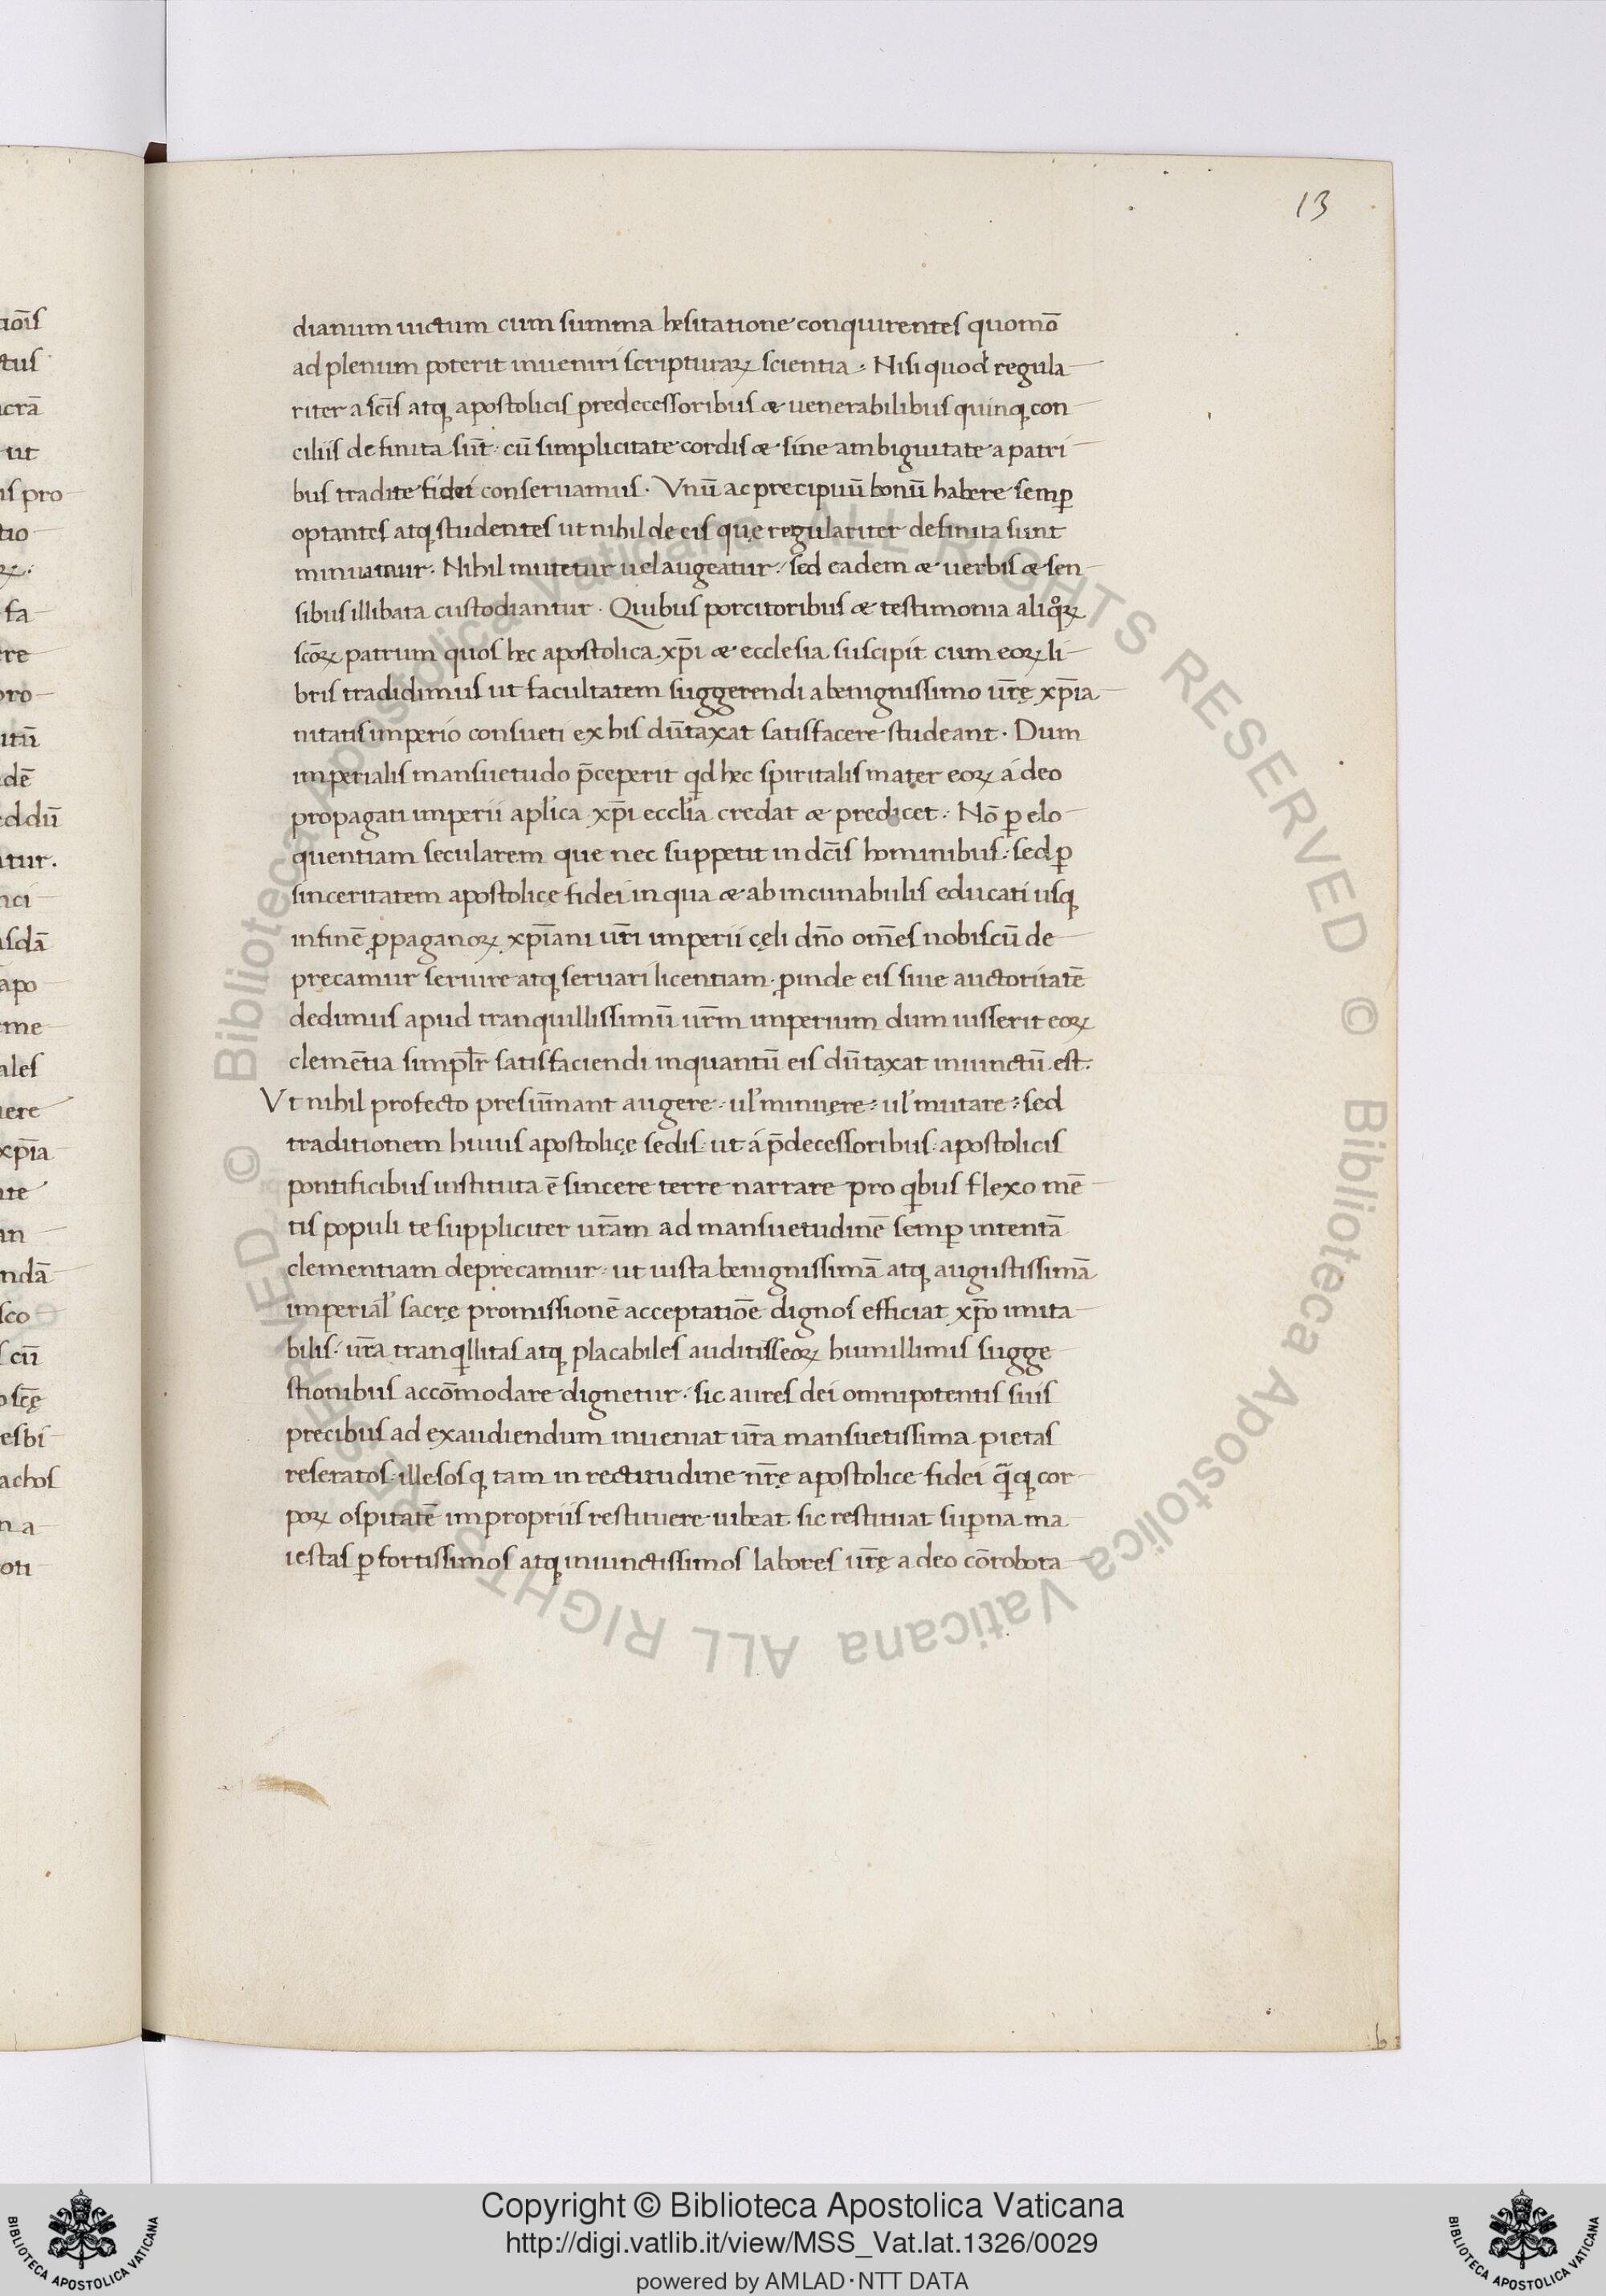 13
dianum uictum cum summa hesitatione conquirentes quomō
ad plenum poterit inueniri scripturaꝝ scientia : Nisi quod regula
riter a scīs atqꝫ apostolicis predecessoribus & uenerabilibus quinqꝫ con
ciliis definita sūt . cū simplicitate cordis & sine ambiguitate a patri
bus tradite fidei conseruamus . Vnū ac precipuū bonū habere semꝑ
optantes atqꝫ studentes ut nihil de eis quę regulariter definita sunt
minuatur . Nihil mutetur uel augeatur : sed eadem & uerbis & sen
sibus illibata custodiantur . Quibus porcitoribus & testimonia aliqͦꝝ
scōꝝ patrum quos hec apostolica xp̄i & ecclesia suscipit cum eoꝝ li
bris tradidimus ut facultatem suggerendi a benignissimo ur̄ę xp̄ia
nitatis imperio consueti ex his dūtaxat satisfacere studeant . Dum
imperialis mansuetudo p̄ceperit qd hec spiritalis mater eoꝝ á deo
propagati imperii apl'ica xp̄i eccl'ia credat & predicet : Nō ꝑ elo
quentiam secularem que nec suppetit in dc̄is hominibus : sed ꝑ
sinceritatem apostolicę fidei in qua & ab incunabulis educati usqꝫ
in finē ꝓpaganoꝝ xp̄iani ur̄i imperii cęli dn̄o om̄es nobiscū de
precamur seruire atqꝫ seruari licentiam . ꝓinde eis siue auctoritatē
dedimus apud tranquillissimū ur̄m imperium dum iusserit eoꝝ
clemētia simpl̄r satisfaciendi inquantū eis dūtaxat iniunctū est .
Vt nihil profecto presūmant augere : ul' minuere : ul' mutare : sed
traditionem huius apostolicę sedis . ut á p̄decessoribus . apostolicis
pontificibus instituta ē sincere terre narrare pro qibus flexo mē
tis populi te suppliciter ur̄am ad mansuetudinē semꝑ intentā
clementiam deprecamur : ut iusta benignissimā atqꝫ augustissimā
imperial' sacrę promissionē acceptatiōe dignos efficiat xp̄o imita
bilis : ur̄a tranqillitas atqꝫ placabiles auditiseoꝝ humillimis sugge
stionibus accōmodare dignetur . sic aures dei omnipotentis suis
precibus ad exaudiendum inueniat ur̄a mansuetissima pietas
reseratos : illesosqꝫ tam in rectitudine nr̄ę apostolice fidei q̄qꝫ cor
poꝝ ospitatē impropriis restituere iubeat sic restituat suꝑna ma
iestas ꝑ fortissimos atqꝫ inuinctissimos labores ur̄ę a deo cōrobora
Copyright © Biblioteca Apostolica Vaticana
http://digi.vatlib.it/view/MSS_Vat.lat.1326/0029
powered by AMLAD·NTT DATA